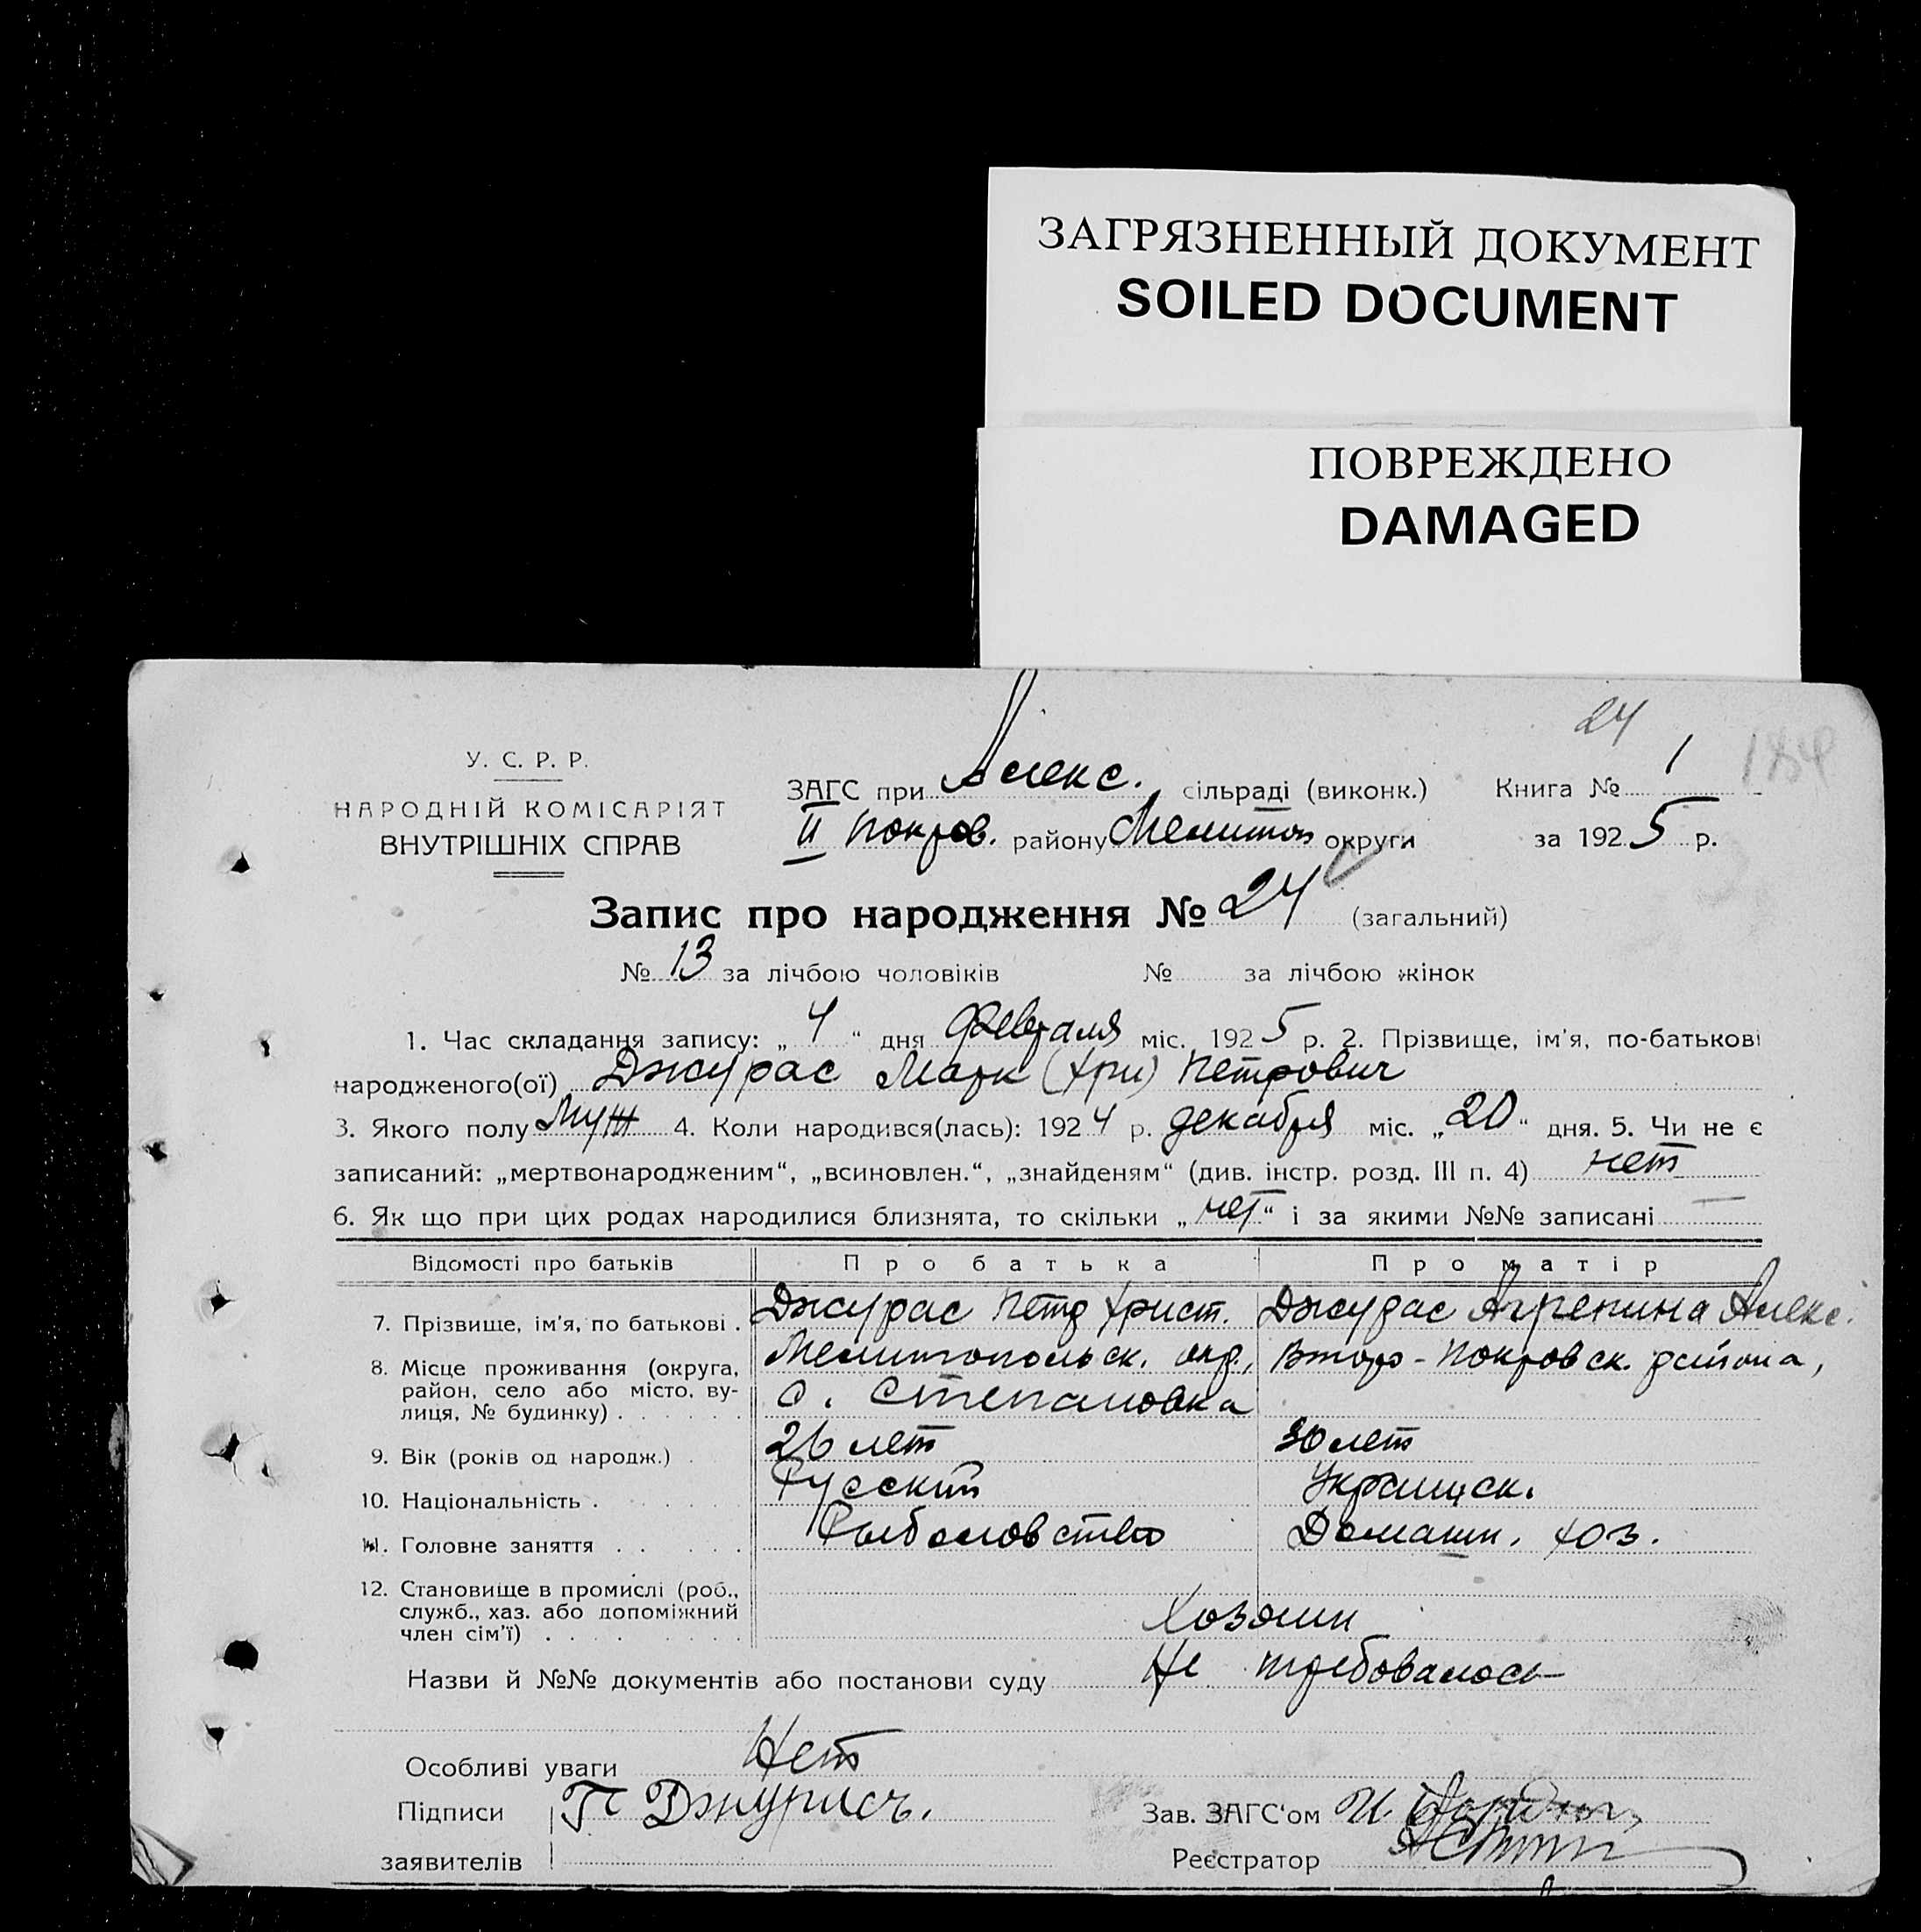 ЗАГРЯЗНЕННЫЙ ДОКУМЕНТ
SOILED DOCUMENT
ПОВРЕЖДЕНО
DAMAGED
24
У. С. Р. Р.
НАРОДНІЙ КОМІСАРІЯТ
ВНУТРІШНІХ СПРАВ
ЗАГС при Алекс. сільраді (виконк.) Книга № 1
II Покров. району Мелитоп округи за 1925 р.
Запис про народження № 24 (загальний)
№ 13 за лічбою чоловіків № за лічбою жінок
1. Час складання запису: „4“ дня февраля міс. 1925 р. 2. Прізвище, ім'я, по-батькові
народженого(ої) Джурас Марк (Хри) Петрович
3. Якого полу Муж 4. Коли народився(лась): 1924 р. декабря міс. „20“ дня. 5. Чи не є
записаний: „мертвонародженим“, „всиновлен.“, „знайденям“ (див. інстр. розд. III п. 4) нет
6. Як що при цих родах народилися близнята, то скільки „нет“ і за якими №№ записані —
Відомості про батьків Про батька Про матір
7. Прізвище, ім'я, по батькові . Джурас Петр Христ. Джурас Агрепина Алекс.
8. Місце проживання (округа, район, село або місто, вулиця, № будинку) . Мелитопольск. окр., Второ-Покровск. района,
с. Степановка
9. Вік (років од народж.) . 26 лет 30 лет
10. Національність . Русский Украинск.
11. Головне заняття . . Рыболовство Домашн. хоз.
12. Становище в промислі (роб., служб., хаз. або допоміжний член сім'ї) . Хозяин
Назви й №№ документів або постанови суду Не требовалось
Особливі уваги Нет
Підписи П Джурасъ.
заявителів
Зав. ЗАГС'ом И.
Реєстратор